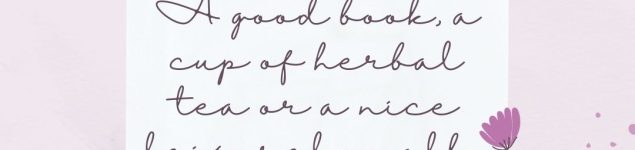 A good book, a
cup of herbal
tea or a nice